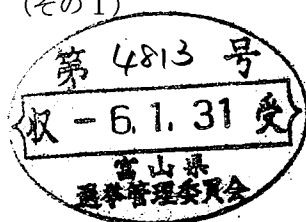 (その1)
第 4813 号
収 -6.1.31 受
富山県
選挙管理委員会